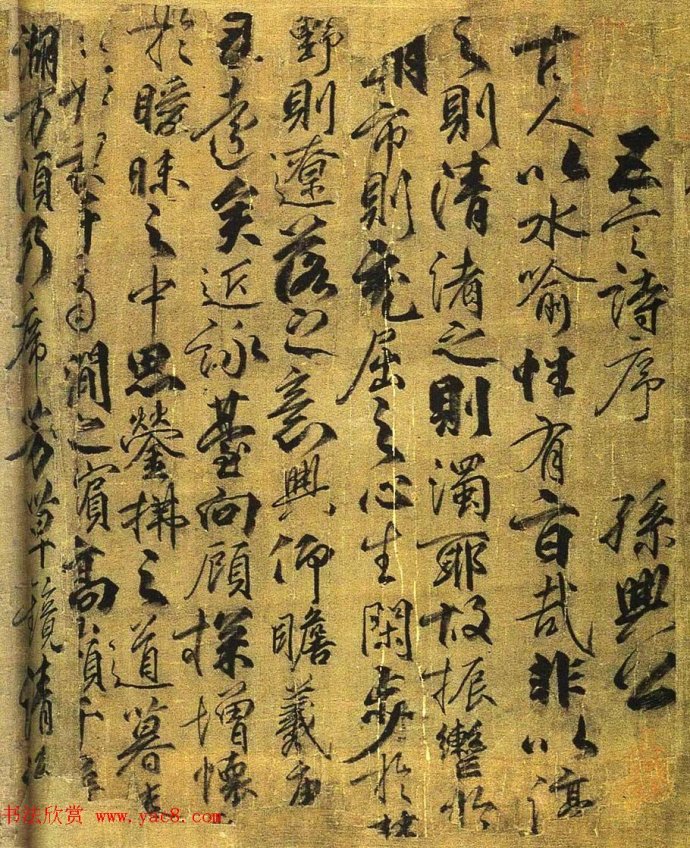 五言詩序 孫興公
古人以水喻性有旨哉非以渟
之則清淆之則濁耶故振轡於
朝市則充屈之心生閑步於林
野則遼落之意興仰瞻羲唐
邈遠矣近詠臺閣顧探增懷
於曖昧之中思瑩拂之道暮春
于南澗之濱高嶺千尋
湖萬頃乃席芳草鏡清
书法欣赏 www.yac8.com